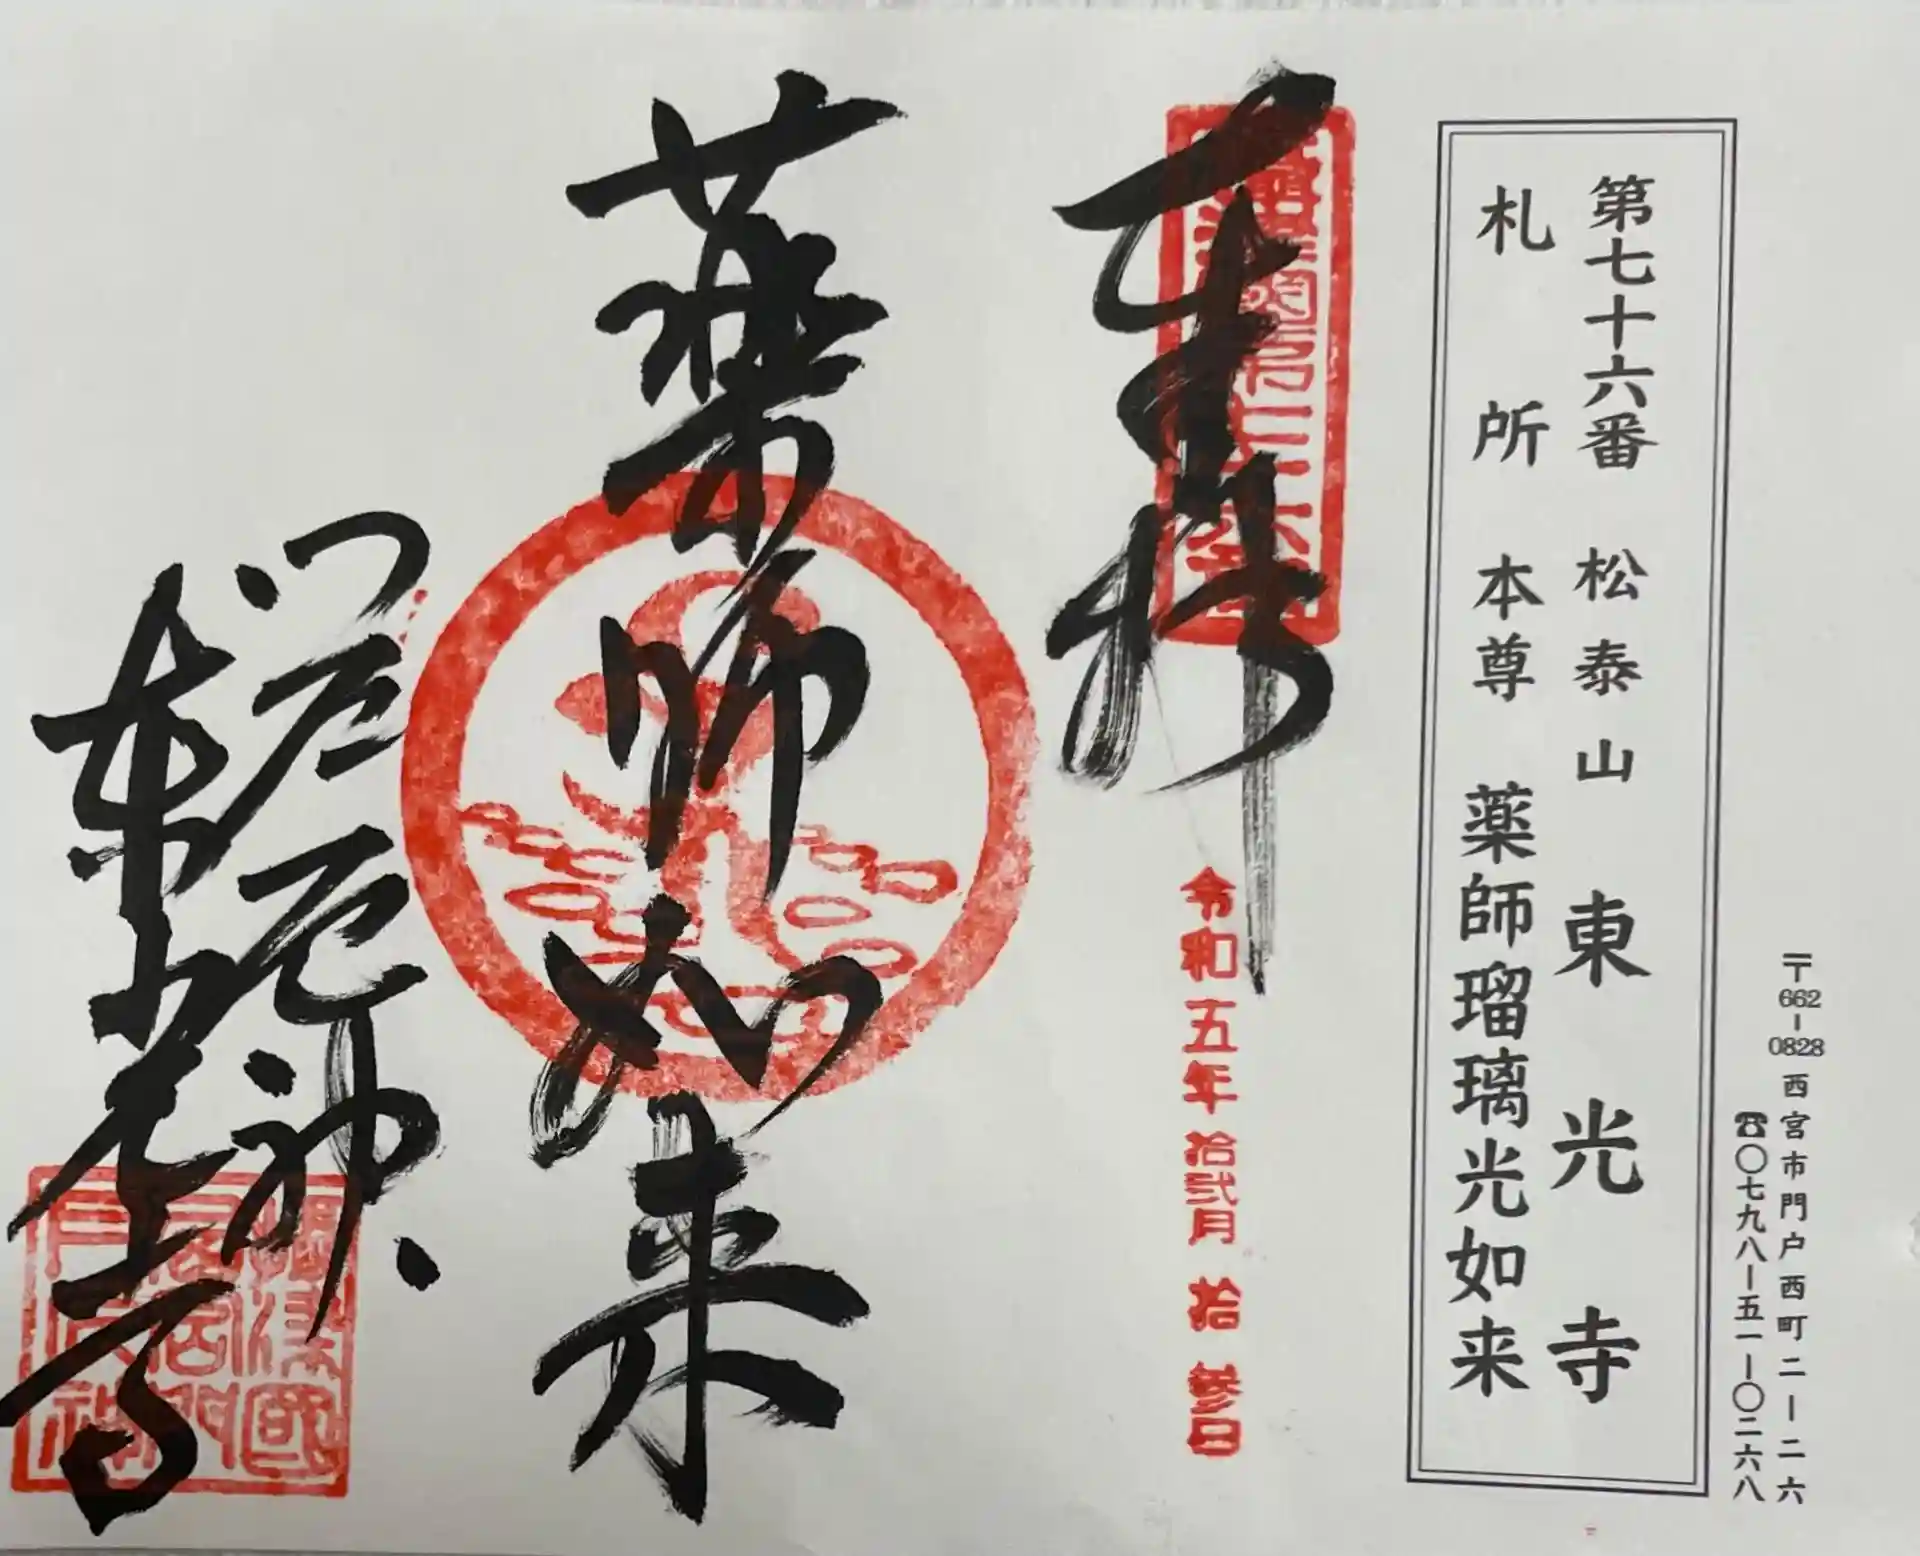 〒662-0828 西宮市門戸西町二ー二六
☎〇七九八ー五一ー〇二六八
第七十六番 松泰山 東光寺
札所本尊 薬師瑠璃光如来
奉拝
令和五年拾弐月拾参日
薬師如来
門戸厄神
東光寺